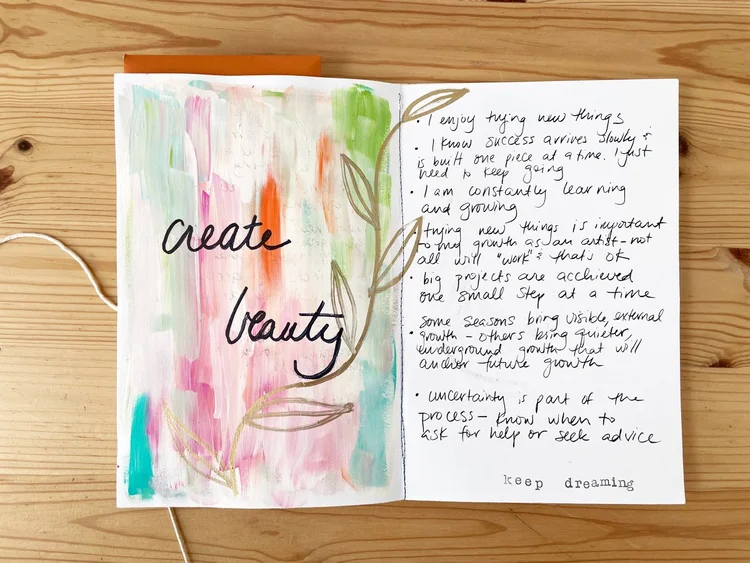 create
beauty
• I enjoy trying new things
• I know success arrives slowly &
is built one piece at a time. I just
need to keep going
• I am constantly learning
and growing
• trying new things is important
to my growth as an artist - not
all will "work" & that's ok
• big projects are acchieved
one small step at a time
some seasons bring visible, external
• growth - others bring quieter,
underground growth that will
anchor future growth
• uncertainty is part of the
process - know when to
ask for help or seek advice
keep dreaming